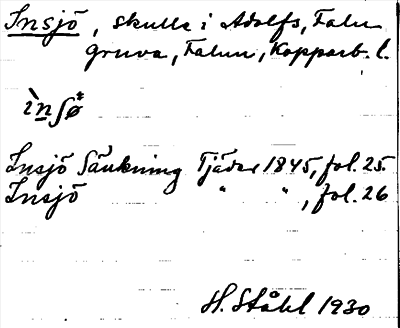 Insjö, skulle i Adolfs, Falu
gruva, Falun, Kopparb. l.
ìnʃø*
Insjö Sänkning Tjäder 1845, fol. 25.
Insjö " " , fol. 26
H. Ståhl 1930